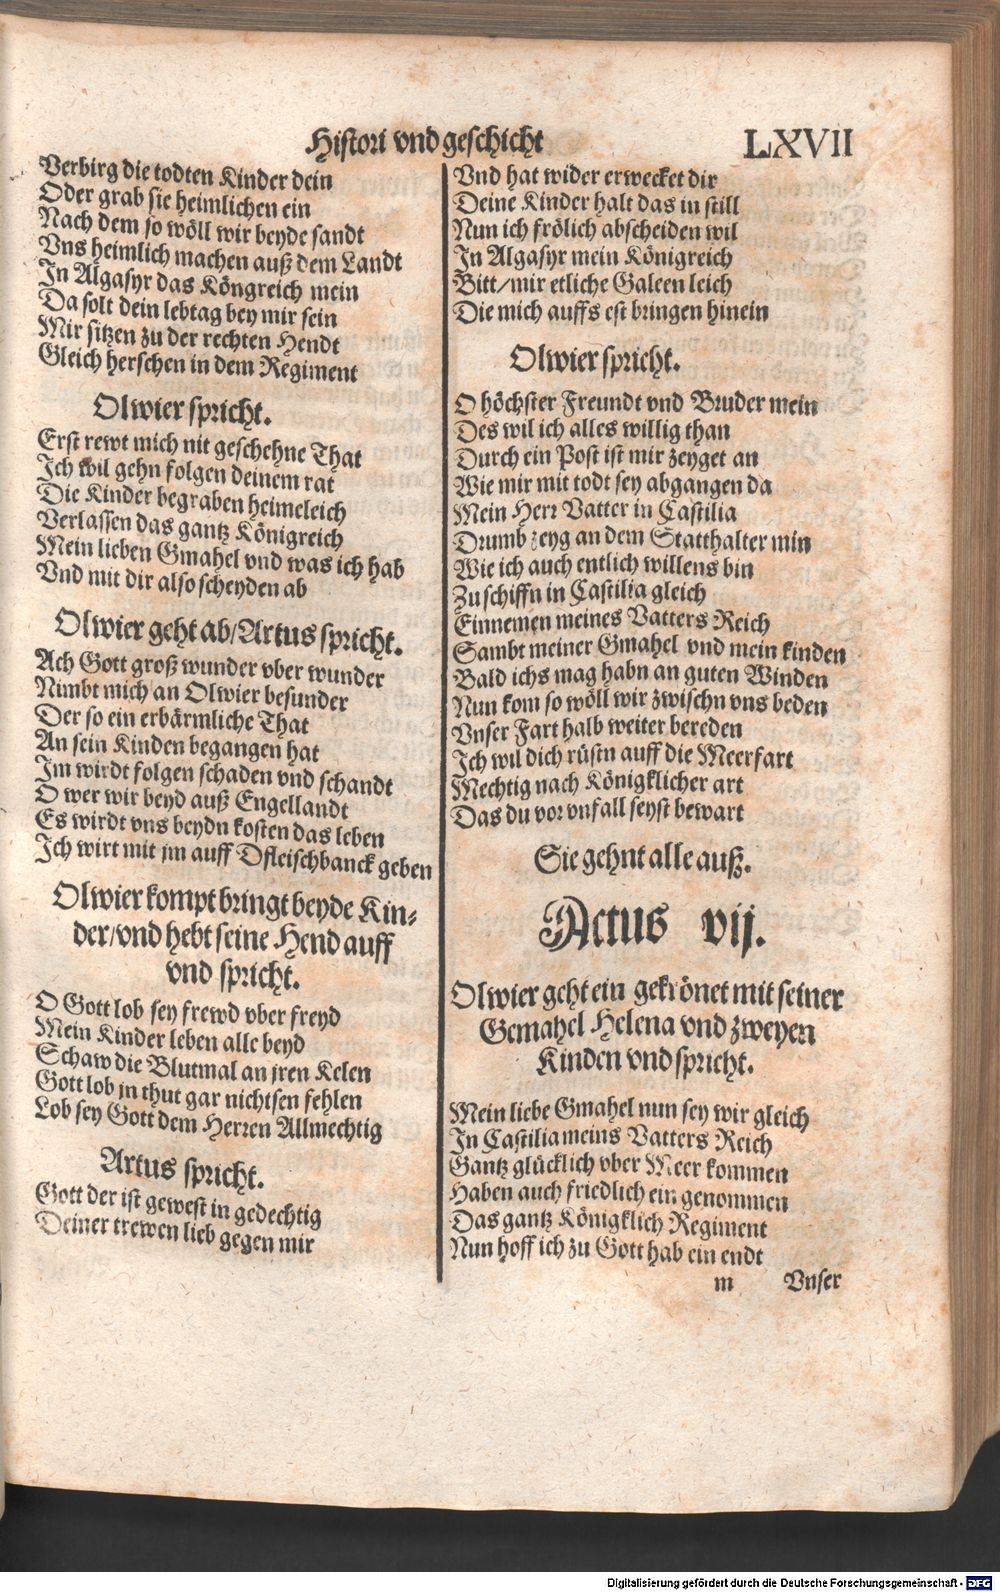 Histori vnd geschicht
LXVII
Verbirg die todten Kinder dein
Oder grab sie heimlichen ein
Nach dem so wöll wir beyde sandt
Vns heimlich machen auß dem Landt
In Algasyr das Köngreich mein
Da solt dein lebtag bey mir sein
Mir sitzen zu der rechten Hendt
Gleich herschen in dem Regiment
Olwier spricht.
Erst rewt mich nit geschehne That
Ich wil gehn folgen deinem rat
Die Kinder begraben heimeleich
Verlassen das gantz Königreich
Mein lieben Gmahel vnd was ich hab
Vnd mit dir also scheyden ab
Olwier geht ab/Artus spricht.
Ach Gott groß wunder vber wunder
Nimbt mich an Olwier besunder
Der so ein erbärmliche That
An sein Kinden begangen hat
Im wirdt folgen schaden vnd schandt
O wer wir beyd auß Engellandt
Es wirdt vns beydn kosten das leben
Ich wirt mit jm auff Dfleischbanck geben
Olwier kompt bringt beyde Kin-
der/vnd hebt seine Hend auff
vnd spricht.
O Gott lob sey frewd vber freyd
Mein Kinder leben alle beyd
Schaw die Blutmal an jren Kelen
Gott lob jn thut gar nichtsen fehlen
Lob sey Gott dem Herren Allmechtig
Artus spricht.
Gott der ist gewest in gedechtig
Deiner trewen lieb gegen mir
Vnd hat wider erwecket dir
Deine Kinder halt das in still
Nun ich frölich abscheiden wil
In Algasyr mein Königreich
Bitt/mir etliche Galeen leich
Die mich auffs est bringen hinein
Olwier spricht.
O höchster Freundt vnd Bruder mein
Des wil ich alles willig than
Durch ein Post ist mir zeyget an
Wie mir mit todt sey abgangen da
Mein Herr Vatter in Castilia
Drumb zeyg an dem Statthalter min
Wie ich auch entlich willens bin
Zu schiffn in Castilia gleich
Einnemen meines Vatters Reich
Sambt meiner Gmahel vnd mein kinden
Bald ichs mag habn an guten Winden
Nun kom so wöll wir zwischn vns beden
Vnser Fart halb weiter bereden
Ich wil dich rüstn auff die Meerfart
Mechtig nach Königklicher art
Das du vor vnfall seyst bewart
Sie gehnt alle auß.
Actus vij.
Olwier geht ein gekrönet mit seiner
Gemahel Helena vnd zweyen
Kinden vnd spricht.
Mein liebe Gmahel nun sey wir gleich
In Castilia meins Vatters Reich
Gantz glücklich vber Meer kommen
Haben auch friedlich ein genommen
Das gantz Königklich Regiment
Nun hoff ich zu Gott hab ein endt
m Vnser
Digitalisierung gefördert durch die Deutsche Forschungsgemeinschaft - DFG